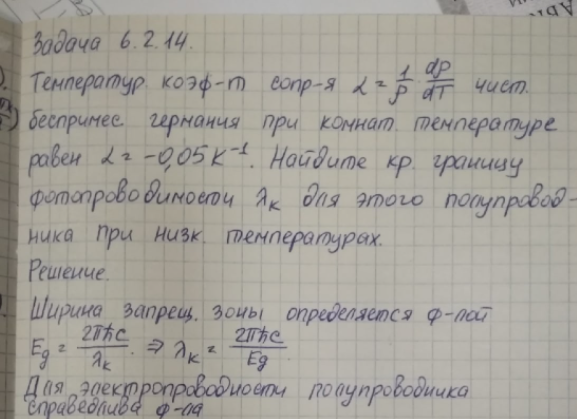 Задача 6.2.14.
Температур. коэф-т сопр-я α = 1/ρ dρ/dT чист.
беспримес. германия при комнат. температуре
равен α = -0,05 K⁻¹. Найдите кр. границу
фотопроводимости λк для этого полупровод-
ника при низк. температурах.
Решение.
Ширина запрещ. зоны определяется ф-лой
Eg = 2πħc/λк. ⇒ λк = 2πħc/Eg
Для электропроводности полупроводника
справедлива ф-ла